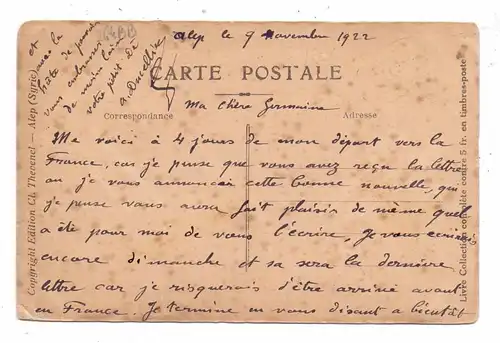 Alep le 9 Novembre 1922
CARTE POSTALE
Ma Chère Germaine
Correspondance
Adresse
Me voici à 4 jours de mon départ vers la
France, car je pense que vous avez reçu la lettre
où je vous annonçais cette bonne nouvelle, qui
je pense vous aura fait plaisir de même quel
a été pour moi de vous l'écrire, Je vous écrirais
encore dimanche et sa sera la dernière
lettre car je risquerais d'être arrivé avant
en France. Je termine en vous disant a bientôt
et
avec la
hâte de pouvoir
vous embrasser
de moins loin
votre petit
Copyright Edition Cl. Thevenet — Alep (Syrie)
Livre Collection complète contre 5 fr. en timbres-poste